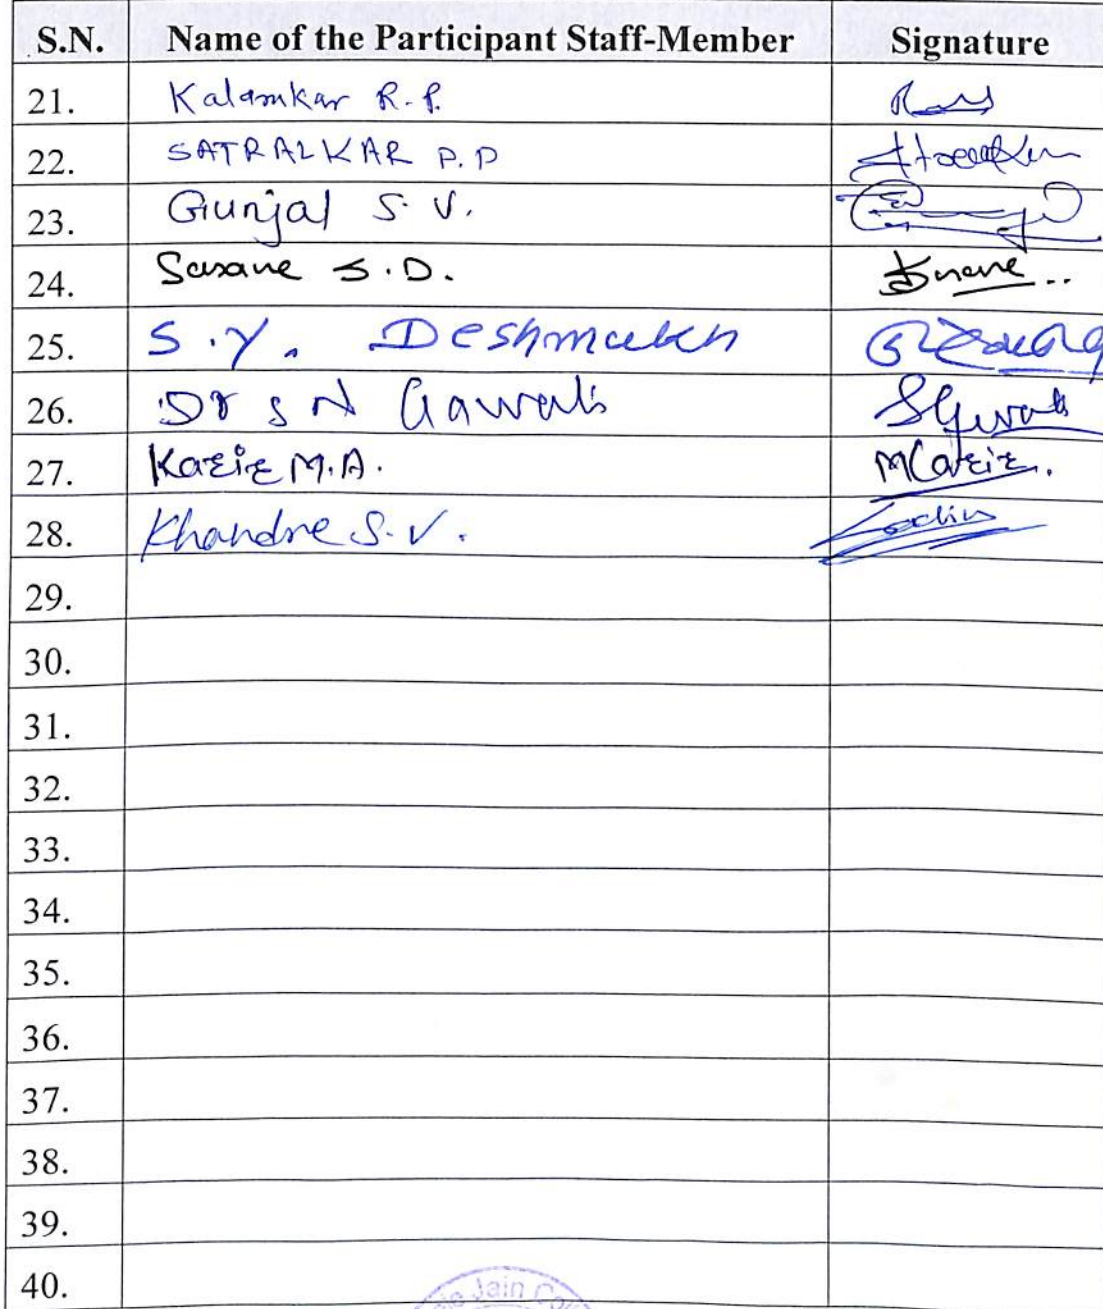 S.N. Name of the Participant Staff-Member Signature
21. Kalamkar R.P.
22. SATRALKAR P.P
23. Gunjal S.V.
24. Sasane S.D.
25. S.Y. Deshmukh
26. Dr S N Gawali SGawali
27. Kazie M.A. MCazie.
28. Khandre S.V.
29.
30.
31.
32.
33.
34.
35.
36.
37.
38.
39.
40.
Jain